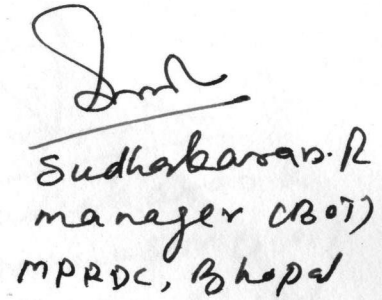 Sudhakaran.R
manager (BOT)
MPRDC, Bhopal